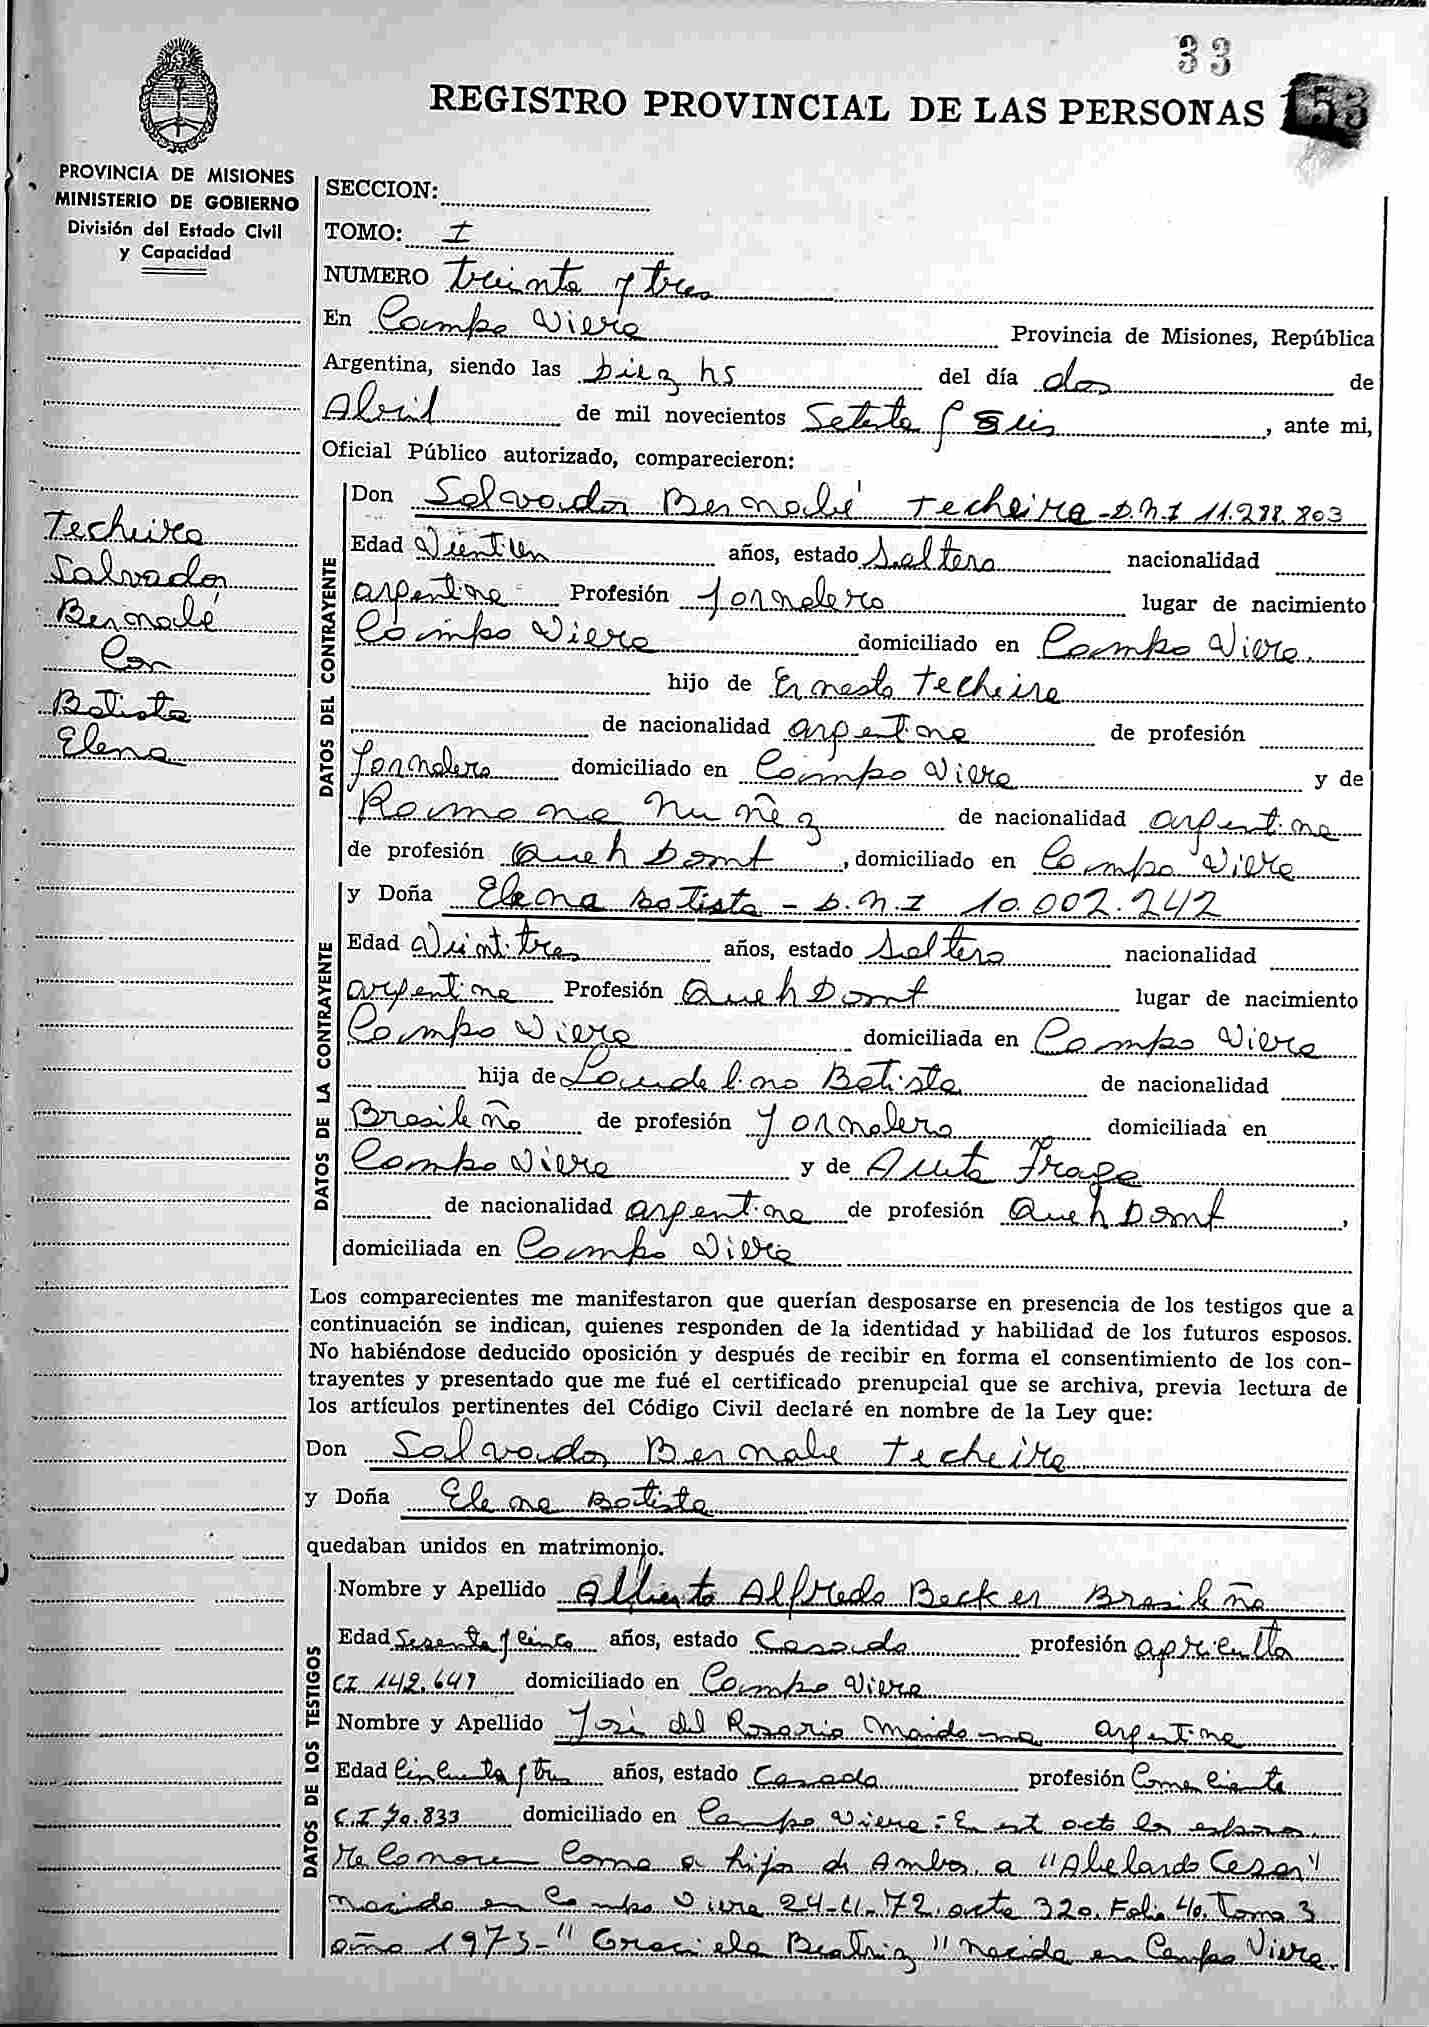 33
REGISTRO PROVINCIAL DE LAS PERSONAS 153
PROVINCIA DE MISIONES
MINISTERIO DE GOBIERNO
División del Estado Civil
y Capacidad
SECCION:
TOMO: I
NUMERO treinta y tres
En Campo Viera Provincia de Misiones, República
Argentina, siendo las Diez hs del día dos de
Abril de mil novecientos Setenta y Seis, ante mi,
Oficial Público autorizado, comparecieron:
Techeira
Salvador
Bernabé
Con
Batista
Elena
DATOS DEL CONTRAYENTE
Don Salvador Bernabé Techeira - D.N.I 11.288.803
Edad años, estado Soltero nacionalidad
argentina Profesión Jornalero lugar de nacimiento
Campo Viera domiciliado en Campo Viera.
hijo de Ernesto Techeira
de nacionalidad argentina de profesión
Jornalero domiciliado en Campo Viera y de
Ramona Nuñez de nacionalidad argentina
de profesión Queh Domt, domiciliado en Campo Viera
DATOS DE LA CONTRAYENTE
y Doña Elena Batista - D.N.I 10.002.242
Edad Veintitres años, estado Soltera nacionalidad
argentina Profesión Queh Domt lugar de nacimiento
Campo Viera domiciliada en Campo Viera
hija de Laudelino Batista de nacionalidad
Brasileño de profesión Jornalero domiciliada en
Campo Viera y de Fraga
de nacionalidad argentina de profesión Queh Domt,
domiciliada en Campo Viera
Los comparecientes me manifestaron que querían desposarse en presencia de los testigos que a
continuación se indican, quienes responden de la identidad y habilidad de los futuros esposos.
No habiéndose deducido oposición y después de recibir en forma el consentimiento de los con-
trayentes y presentado que me fué el certificado prenupcial que se archiva, previa lectura de
los artículos pertinentes del Código Civil declaré en nombre de la Ley que:
Don Salvador Bernabe Techeira
y Doña Elena Batista
quedaban unidos en matrimonio.
DATOS DE LOS TESTIGOS
Nombre y Apellido Alfredo Becker Brasileño
Edad Sesenta y Cinco años, estado Casado profesión
CI 142.647 domiciliado en Campo Viera
Nombre y Apellido José del Rosario Maidana argentina
Edad Cincuenta y tres años, estado Casado profesión Comerciante
C.I 70.833 domiciliado en Campo Viera - En est acto los esposos
reconocen como a hijos de Ambos a "Abelardo Cesar"
nacido en Campo Viera 24-11-72 acta 320. Folio 40. Tomo 3
año 1973 - "Graciela Beatriz" nacida en Campo Viera.